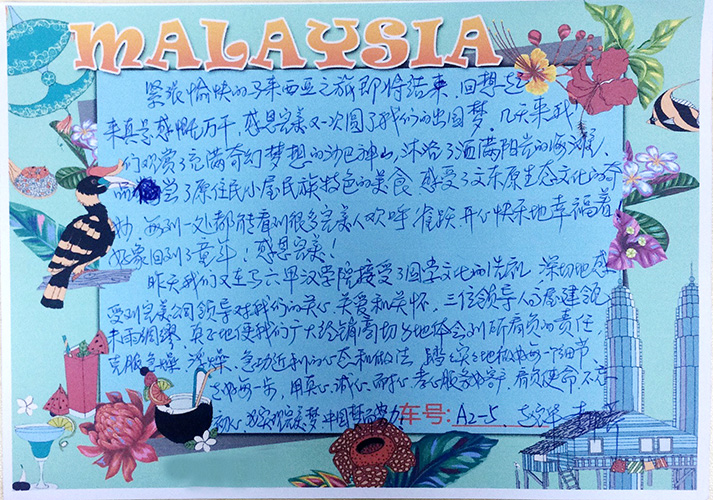 MALAYSIA
紧张愉快的马来西亚之旅即将结束，回想起
来真是感慨万千，感恩完美又一次圆了我们的出国梦。几天来我
们欣赏了充满奇幻梦想的沙巴神山，沐浴了洒满阳光的海滩，
尝了原住民小屋民族特色的美食，感受了文东原生态文化的奇
妙，每到一处都能看到很多完美人欢呼雀跃，开心快乐地幸福着！
好象回到了童年！感恩完美！
昨天我们又在马六甲汉学院接受了国学文化的洗礼，深切地感
受到完美公司领导对我们的关心、关爱和关怀，三位领导人的高建领
未雨绸缪，真正地使我们广大经销商切身地体会到所肩负的责任，
克服急躁、浮躁、急功近利的心态和做法，踏踏实实地做好每一个细节
走好每一步，用真心、诚心、耐心、孝心服务好顾客，肩负使命不忘
初心为实现完美梦中国梦而努力 车号：A2-5